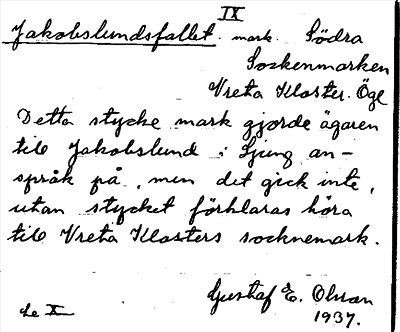 IX
Jakobslundsfallet. mark. Södra
Sockenmarken
Vreta Kloster. Ögl
Detta stycke mark gjorde ägaren
till Jakobslund i Ljung an-
språk på, men det gick inte,
utan stycket förklaras höra
till Vreta Klosters socknemark.
Gustaf E. Olsson
1937.
se X